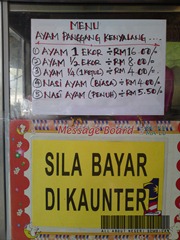 MENU
AYAM PANGGANG KENYALANG....
① AYAM 1 EKOR ÷ RM16.00/-
② AYAM ½ EKOR ÷ RM 8.00/-
③ AYAM ¼ (1 KETUL) ÷ RM 4.00/-
④ NASI AYAM (BIASA) ÷ RM4.00/-
⑤ NASI AYAM (PENUH) ÷ RM 5.50/-
Message Board
SILA BAYAR
DI KAUNTER